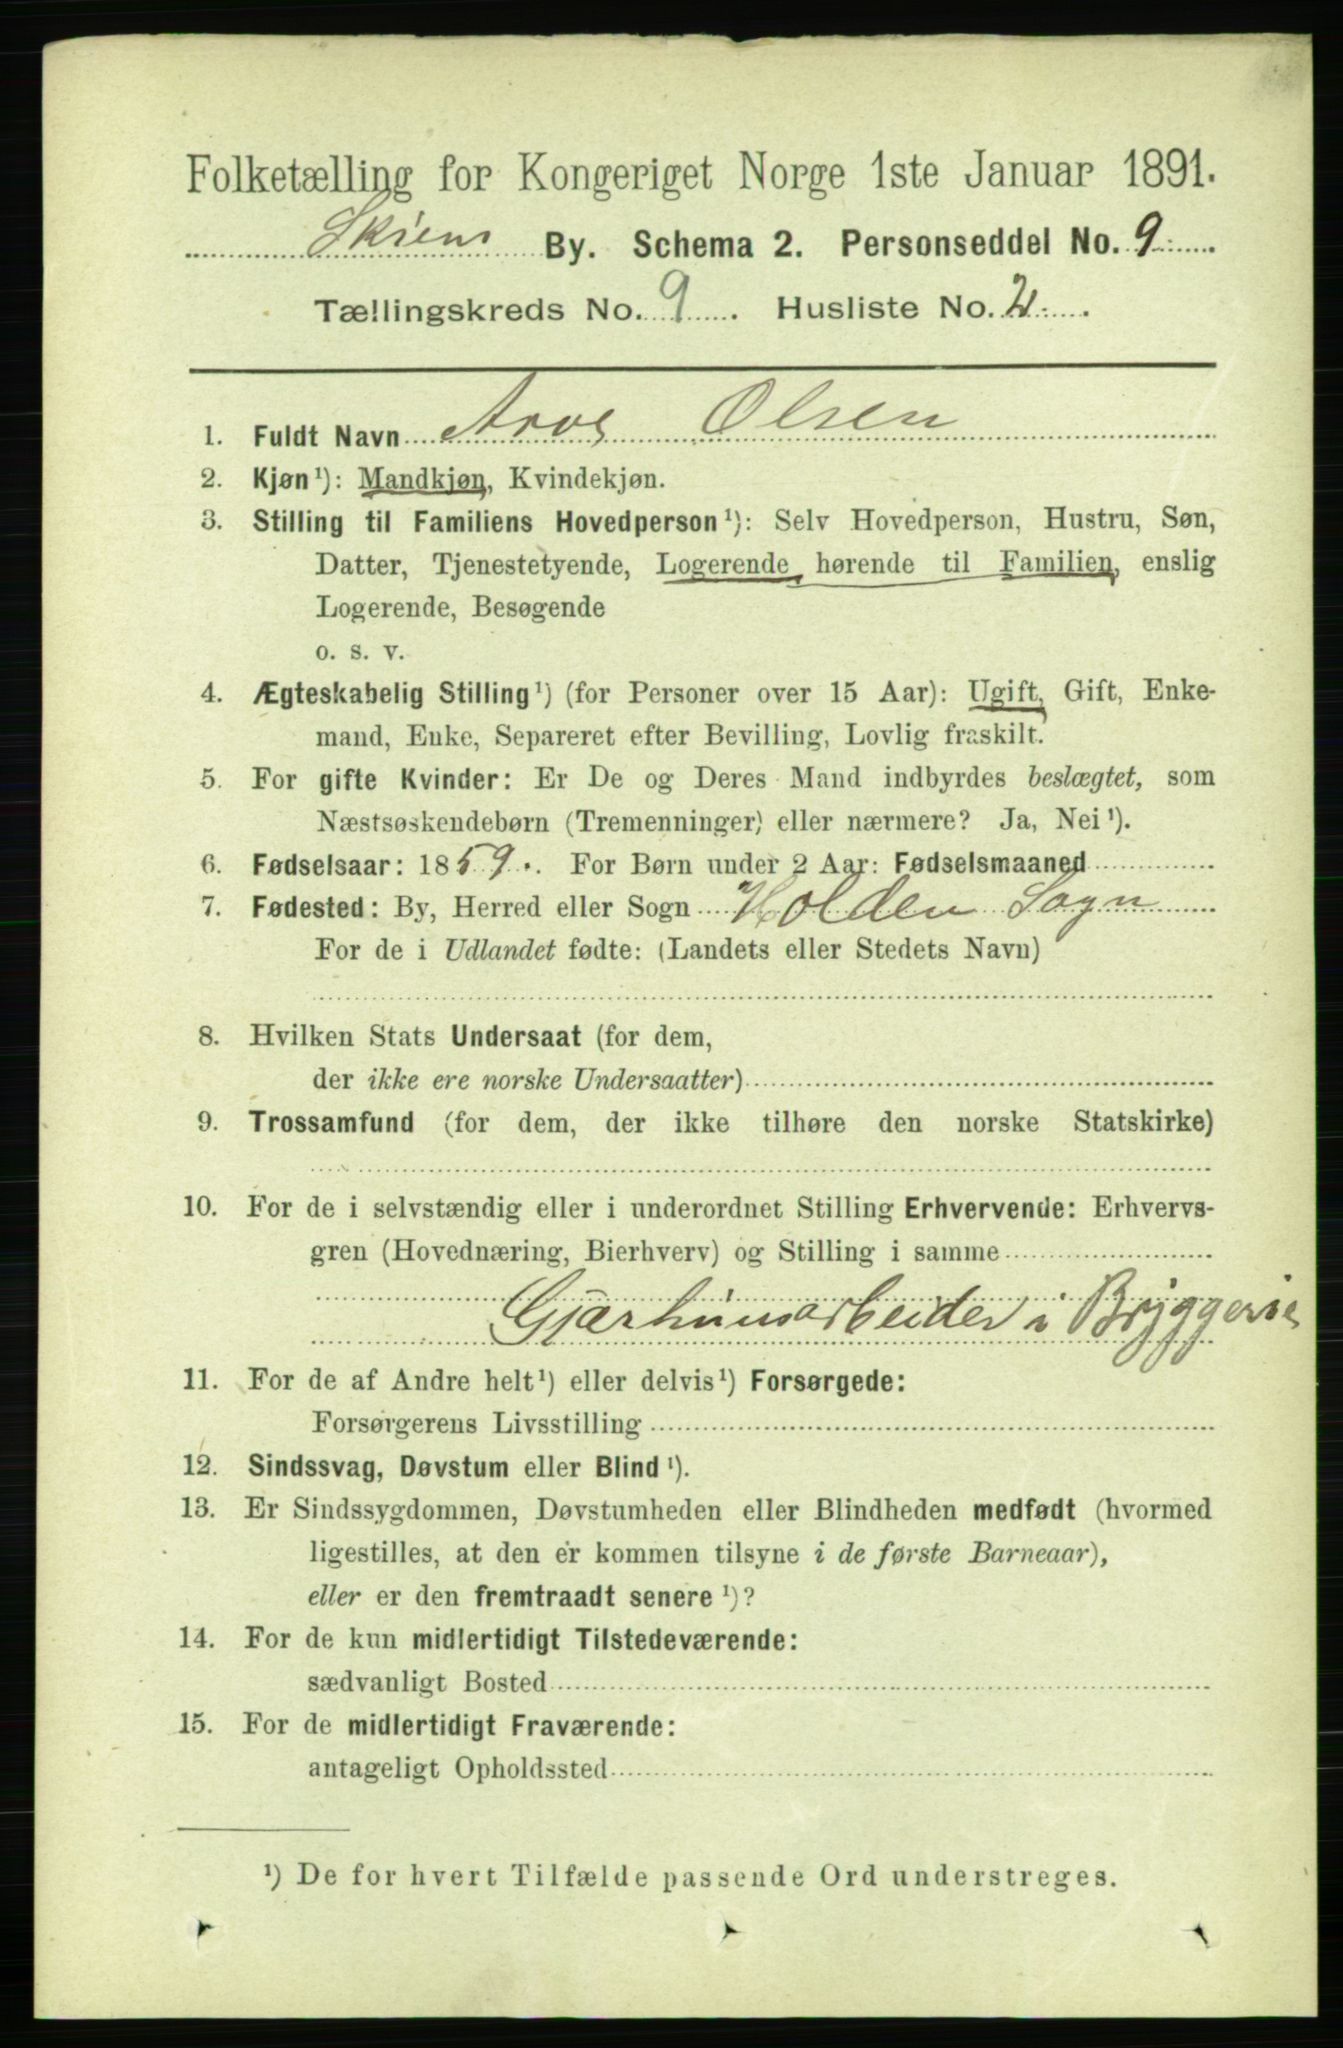 Folketælling for Kongeriget Norge 1ste Januar 1891.
Skiens By. Schema 2. Personseddel No. 9
Tællingskreds No. 9. Husliste No. 2.
1. Fuldt Navn Arve Olsen
2. Kjøn¹): Mandkjøn, Kvindekjøn.
3. Stilling til Familiens Hovedperson¹): Selv Hovedperson, Hustru, Søn,
Datter, Tjenestetyende, Logerende hørende til Familien, enslig
Logerende, Besøgende
o. s. v.
4. Ægteskabelig Stilling¹) (for Personer over 15 Aar): Ugift, Gift, Enke-
mand, Enke, Separeret efter Bevilling, Lovlig fraskilt.
5. For gifte Kvinder: Er De og Deres Mand indbyrdes beslægtet, som
Næstsøskendebørn (Tremenninger) eller nærmere? Ja, Nei¹).
6. Fødselsaar: 1859. For Børn under 2 Aar: Fødselsmaaned
7. Fødested: By, Herred eller Sogn Holden Sogn
For de i Udlandet fødte: (Landets eller Stedets Navn)
8. Hvilken Stats Undersaat (for dem,
der ikke ere norske Undersaatter)
9. Trossamfund (for dem, der ikke tilhøre den norske Statskirke)
10. For de i selvstændig eller i underordnet Stilling Erhvervende: Erhvervs-
gren (Hovednæring, Bierhverv) og Stilling i samme
Gjærhuusarbeider i Bryggerie
11. For de af Andre helt¹) eller delvis¹) Forsørgede:
Forsørgerens Livsstilling
12. Sindssvag, Døvstum eller Blind¹).
13. Er Sindssygdommen, Døvstumheden eller Blindheden medfødt (hvormed
ligestilles, at den er kommen tilsyne i de første Barneaar),
eller er den fremtraadt senere¹)?
14. For de kun midlertidigt Tilstedeværende:
sædvanligt Bosted
15. For de midlertidigt Fraværende:
antageligt Opholdssted
¹) De for hvert Tilfælde passende Ord understreges.